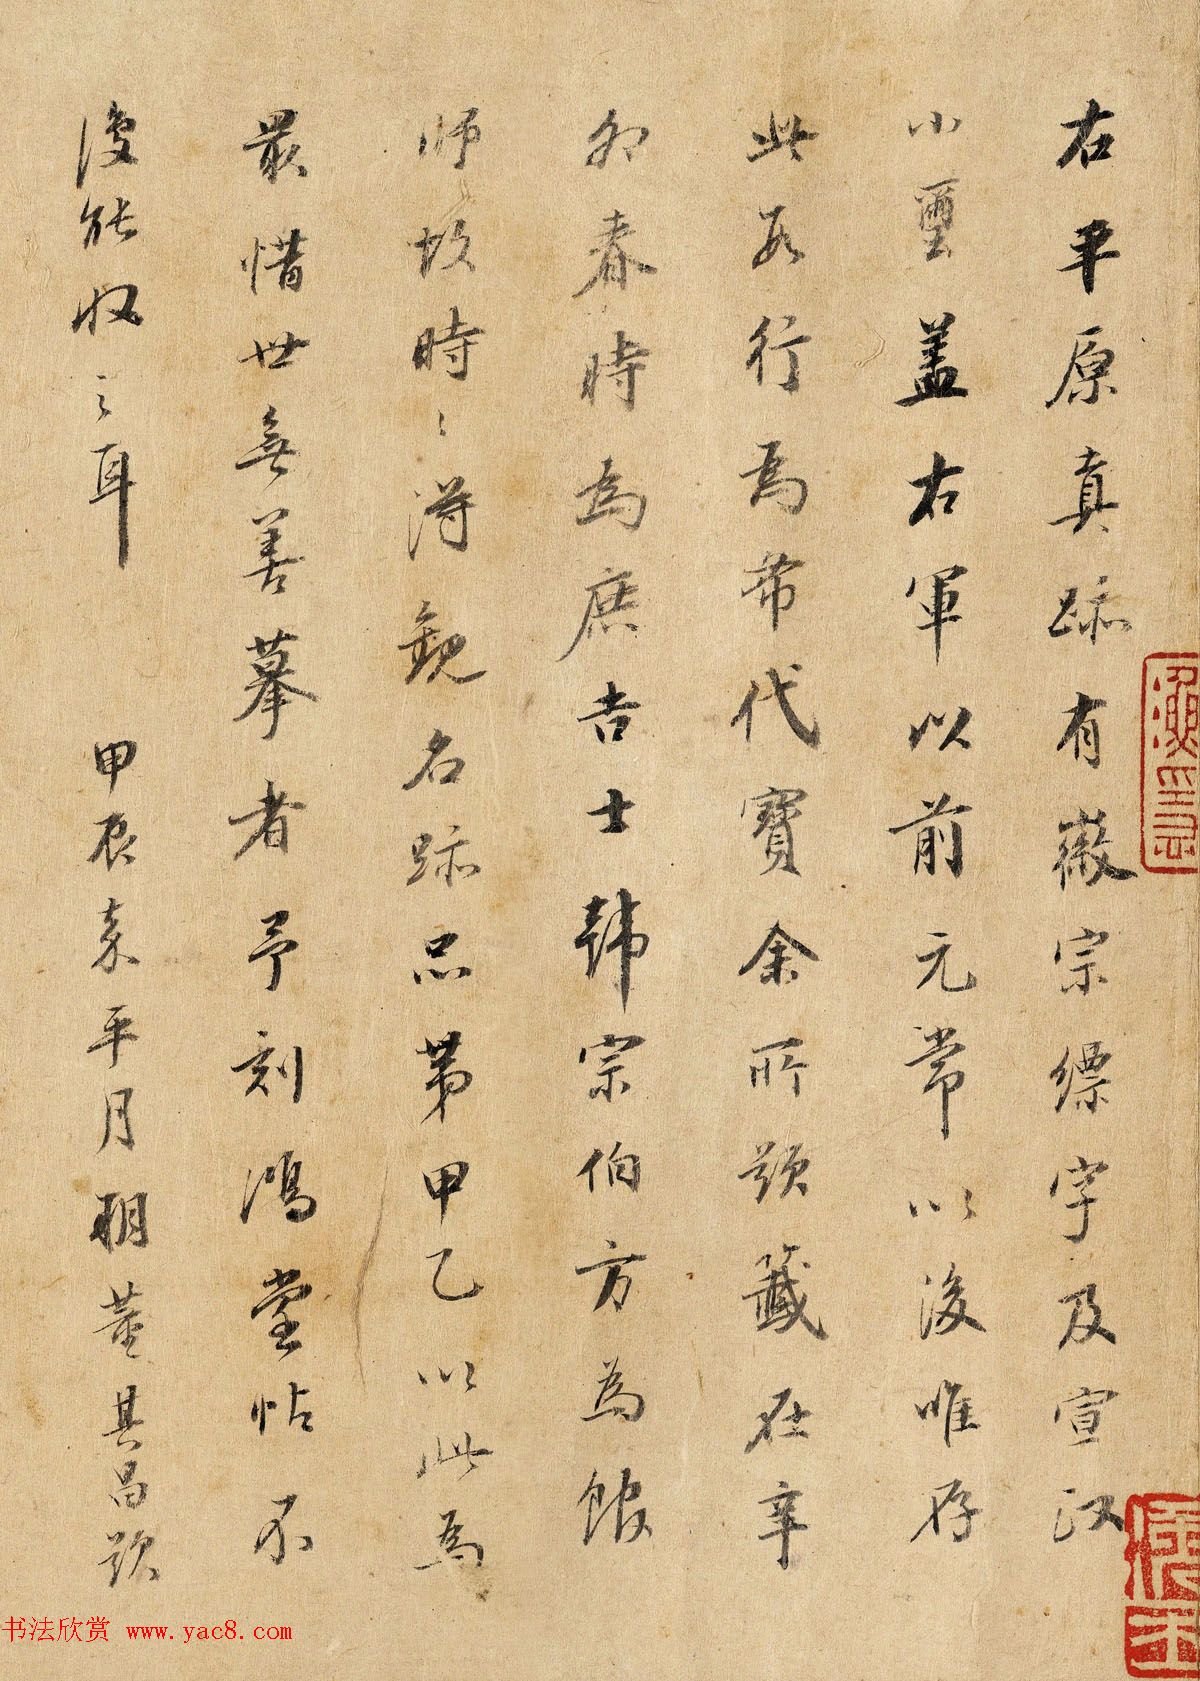 右平原真跡有徽宗縹字及宣和
小璽蓋右軍以前元常以後唯存
此數行為希代寶余所題籤在辛
卯春時為庶吉士韓宗伯方為館
師故時〻得觀名跡品第甲乙以此為
最惜世無善摹者予刻鴻堂帖不
復能收之耳 甲辰嘉平月朔董其昌題
书法欣赏 www.yac8.com